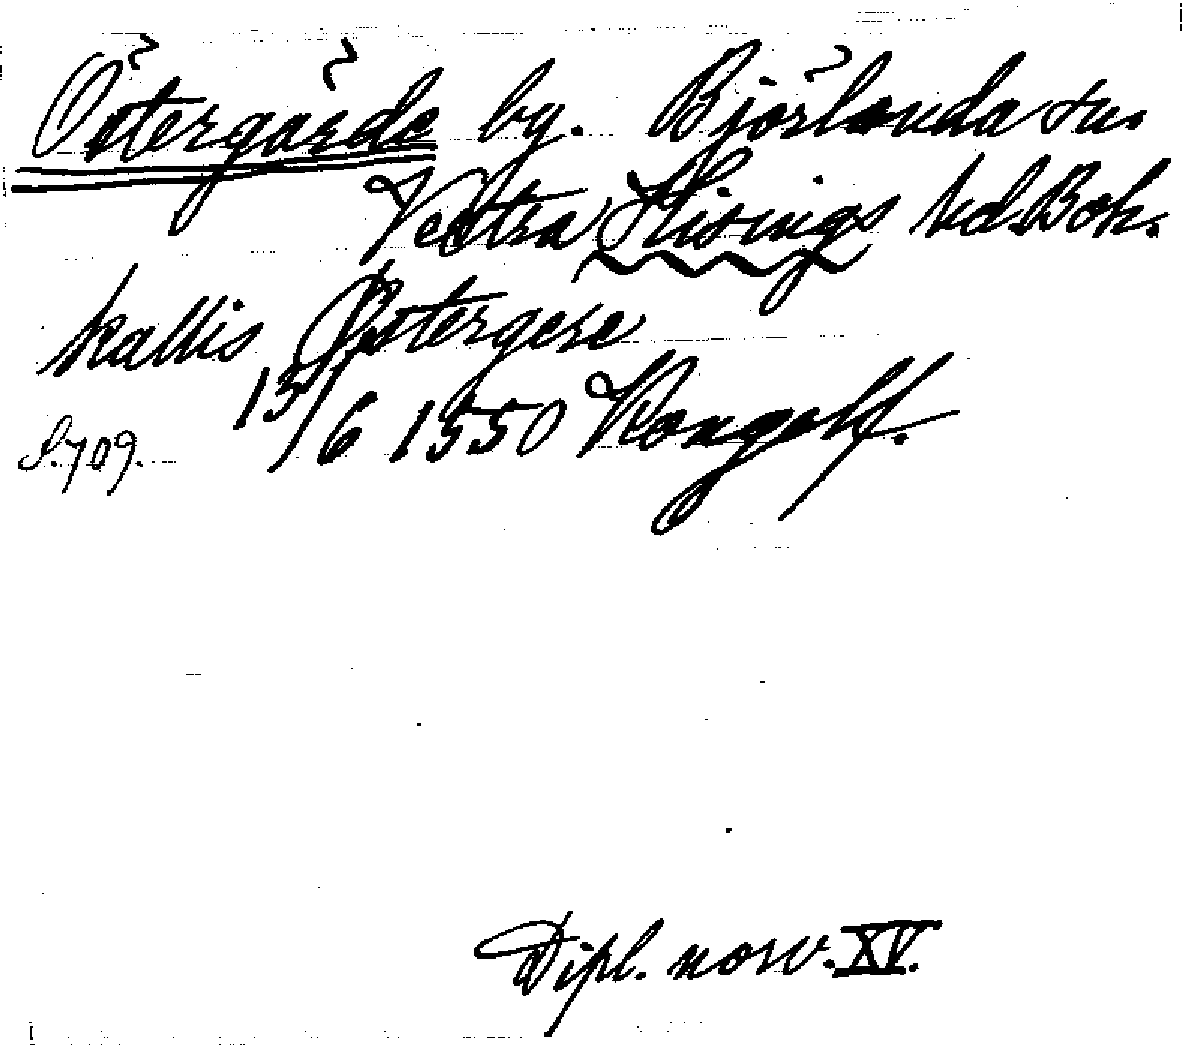 Östergärde by. Björlanda sn.
Vestra Hisings hd. Boh.
kallis Østergere
S. 709. 15/6 1550 Kongelf.
Dipl. norv. XV.